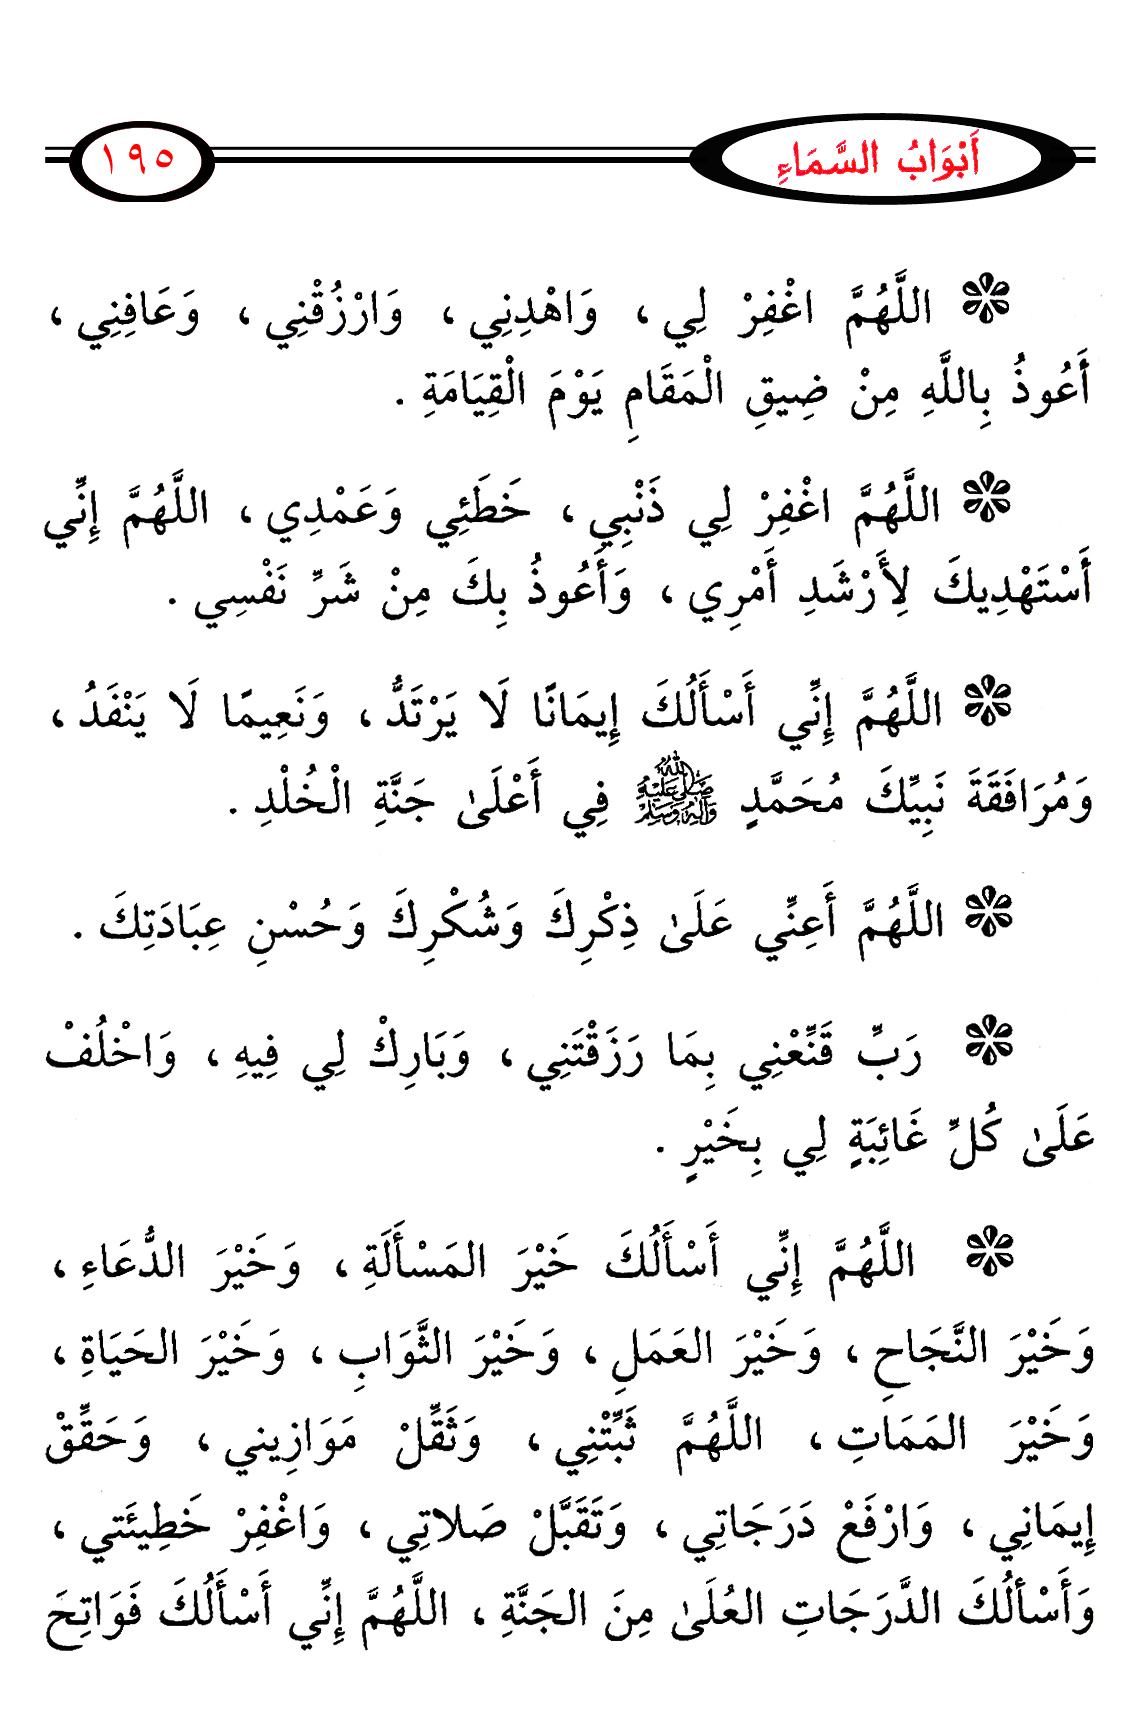 أَبْوَابُ السَّمَاءِ
١٩٥
❋ اللَّهُمَّ اغْفِرْ لِي ، وَاهْدِنِي ، وَارْزُقْنِي ، وَعَافِنِي ،
أَعُوذُ بِاللَّهِ مِنْ ضِيقِ الْمَقَامِ يَوْمَ الْقِيَامَةِ .
❋ اللَّهُمَّ اغْفِرْ لِي ذَنْبِي ، خَطَئِي وَعَمْدِي ، اللَّهُمَّ إِنِّي
أَسْتَهْدِيكَ لِأَرْشَدِ أَمْرِي ، وَأَعُوذُ بِكَ مِنْ شَرِّ نَفْسِي .
❋ اللَّهُمَّ إِنِّي أَسْأَلُكَ إِيمَانًا لَا يَرْتَدُّ ، وَنَعِيمًا لَا يَنْفَدُ ،
وَمُرَافَقَةَ نَبِيِّكَ مُحَمَّدٍ صلى الله عليه وآله وسلم فِي أَعْلَىٰ جَنَّةِ الْخُلْدِ .
❋ اللَّهُمَّ أَعِنِّي عَلَىٰ ذِكْرِكَ وَشُكْرِكَ وَحُسْنِ عِبَادَتِكَ .
❋ رَبِّ قَنِّعْنِي بِمَا رَزَقْتَنِي ، وَبَارِكْ لِي فِيهِ ، وَاخْلُفْ
عَلَىٰ كُلِّ غَائِبَةٍ لِي بِخَيْرٍ .
❋ اللَّهُمَّ إِنِّي أَسْأَلُكَ خَيْرَ المَسْأَلَةِ ، وَخَيْرَ الدُّعَاءِ ،
وَخَيْرَ النَّجَاحِ ، وَخَيْرَ العَمَلِ ، وَخَيْرَ الثَّوَابِ ، وَخَيْرَ الحَيَاةِ ،
وَخَيْرَ المَمَاتِ ، اللَّهُمَّ ثَبِّتْنِي ، وَثَقِّلْ مَوَازِيني ، وَحَقِّقْ
إِيمَانِي ، وَارْفَعْ دَرَجَاتِي ، وَتَقَبَّلْ صَلاتِي ، وَاغْفِرْ خَطِيئَتي ،
وَأَسْألُكَ الدَّرَجَاتِ العُلَىٰ مِنَ الجَنَّةِ ، اللَّهُمَّ إِنِّي أَسْأَلُكَ فَوَاتِحَ